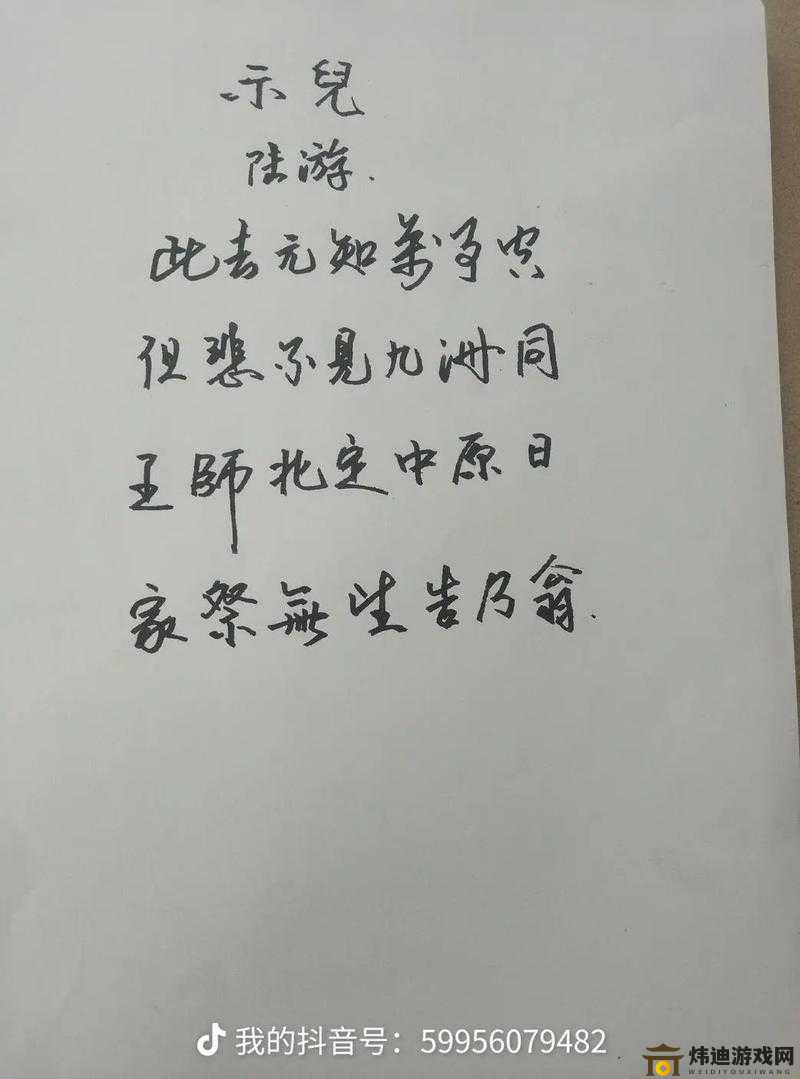 示兒
陆游.
此去元知萬事空
但悲不見九洲同
王師北定中原日
家祭無忘告乃翁.
我的抖音号：59956079482
炜迪游戏网
WEIDIYOUXIWANG